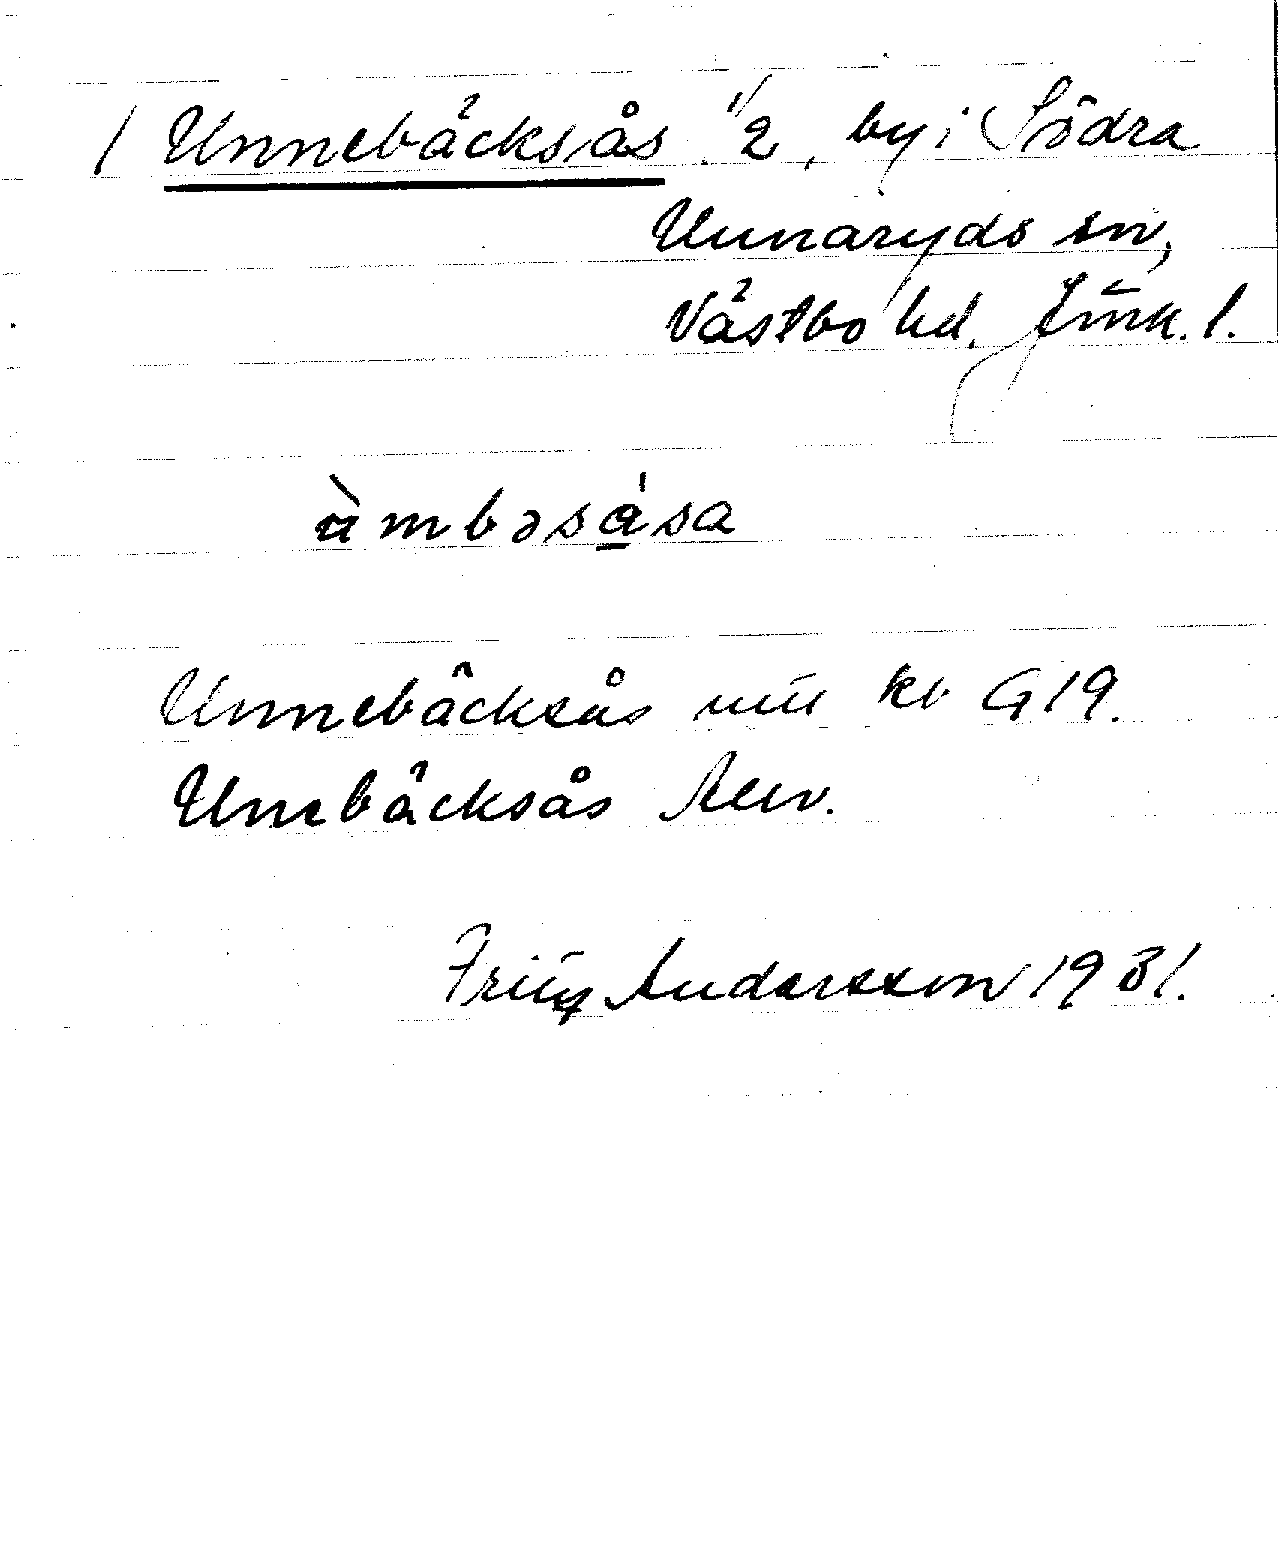 / Unnebäcksås 1/2, by i Södra
Unnaryds sn,
Västbo hd. Jönk. l.
ùmbəsåsa
Unnebäcksås kb G 19.
Unebäcksås
Fritz Andersson 1931.